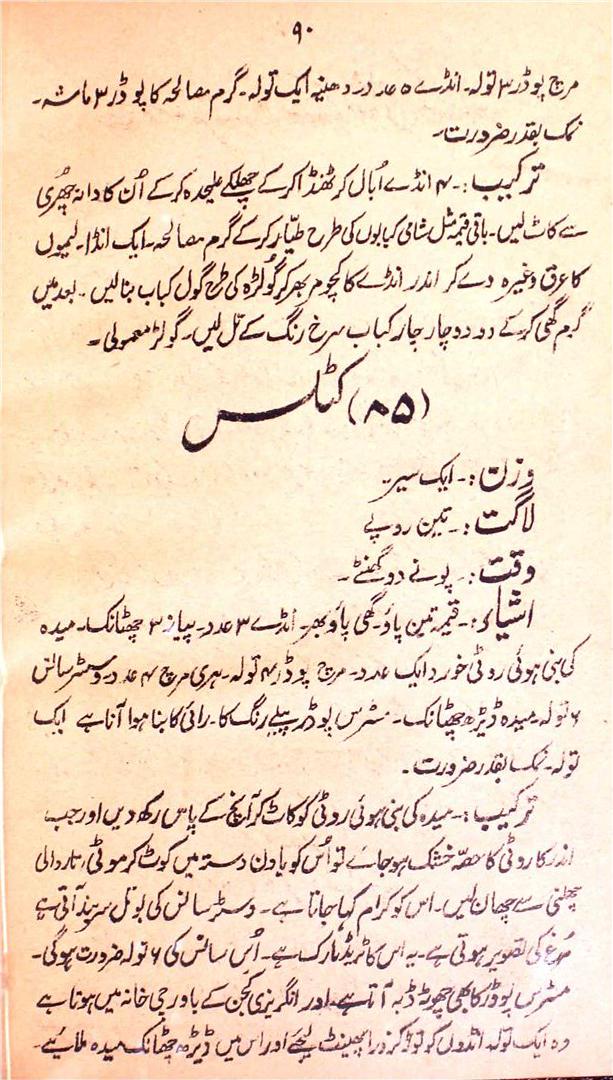 ۹۰
مرچ پوڈر ۳ تولہ۔ انڈے ۵ عدد۔ دھنیہ ایک تولہ۔ گرم مصالحہ کا پوڈر ۳ ماشہ۔
نمک بقدر ضرورت۔
ترکیب :۔ ۴ انڈے اُبال کر ٹھنڈا کر کے چھلکے علیحدہ کر کے اُن کا دانہ چھُری
سے کاٹ لیں۔ باقی قیمہ مثل شامی کبابوں کی طرح طیّار کر کے گرم مصالحہ۔ ایک انڈا۔ لیموں
کا عرق وغیرہ دے کر اندر انڈے کا کچومر بھر کر گولڑہ کی طرح گول کباب بنا لیں۔ بعد میں
گرم گھی کر کے دو دو چار چار کباب سرخ رنگ کے تل لیں۔ گولڑ معمولی۔
(۸۵) کٹلس
وزن :۔ ایک سیر
لاگت :۔ تین روپے
وقت :۔ پونے دو گھنٹے۔
اشیاء :۔ قیمہ تین پاؤ۔ گھی پاؤ بھر۔ انڈے ۳ عدد۔ پیاز ۳ چھٹانک۔ میدہ
کی بنی ہوئی روٹی خورد ایک عدد۔ مرچ پوڈر ۴ تولہ۔ ہری مرچ ۴ عدد۔ وسٹر سائس
۶ تولہ۔ میدہ ڈیڑھ چھٹانک۔ مسٹرس پوڈر پیلے رنگ کا۔ رائی کا بنا ہوا آتا ہے ایک
تولہ۔ نمک بقدر ضرورت۔
ترکیب :۔ میدہ کی بنی ہوئی روٹی کو کاٹ کر آنچ کے پاس رکھ دیں اور جب
اندر کا روٹی کا حصّہ خشک ہو جائے تو اُس کو ہاون دستہ میں کوٹ کر موٹی تار والی
چھلنی سے چھان لیں۔ اس کو کرام کہا جاتا ہے۔ وسٹر سائس کی بوتل سربند آتی ہے
مُرغ کی تصویر ہوتی ہے۔ یہ اس کا ٹریڈ مارک ہے۔ اُس سائس کی ۶ تولہ ضرورت ہوگی۔
مسٹرس پوڈر کا بھی چھوٹا ڈبہ آتا ہے۔ اور انگریزی کچن کے باورچی خانہ میں ہوتا ہے
وہ ایک تولہ انڈوں کو توڑ کر ذرا پھینٹ لیجئے اور اس میں ڈیڑھ چھٹانک میدہ ملایئے۔